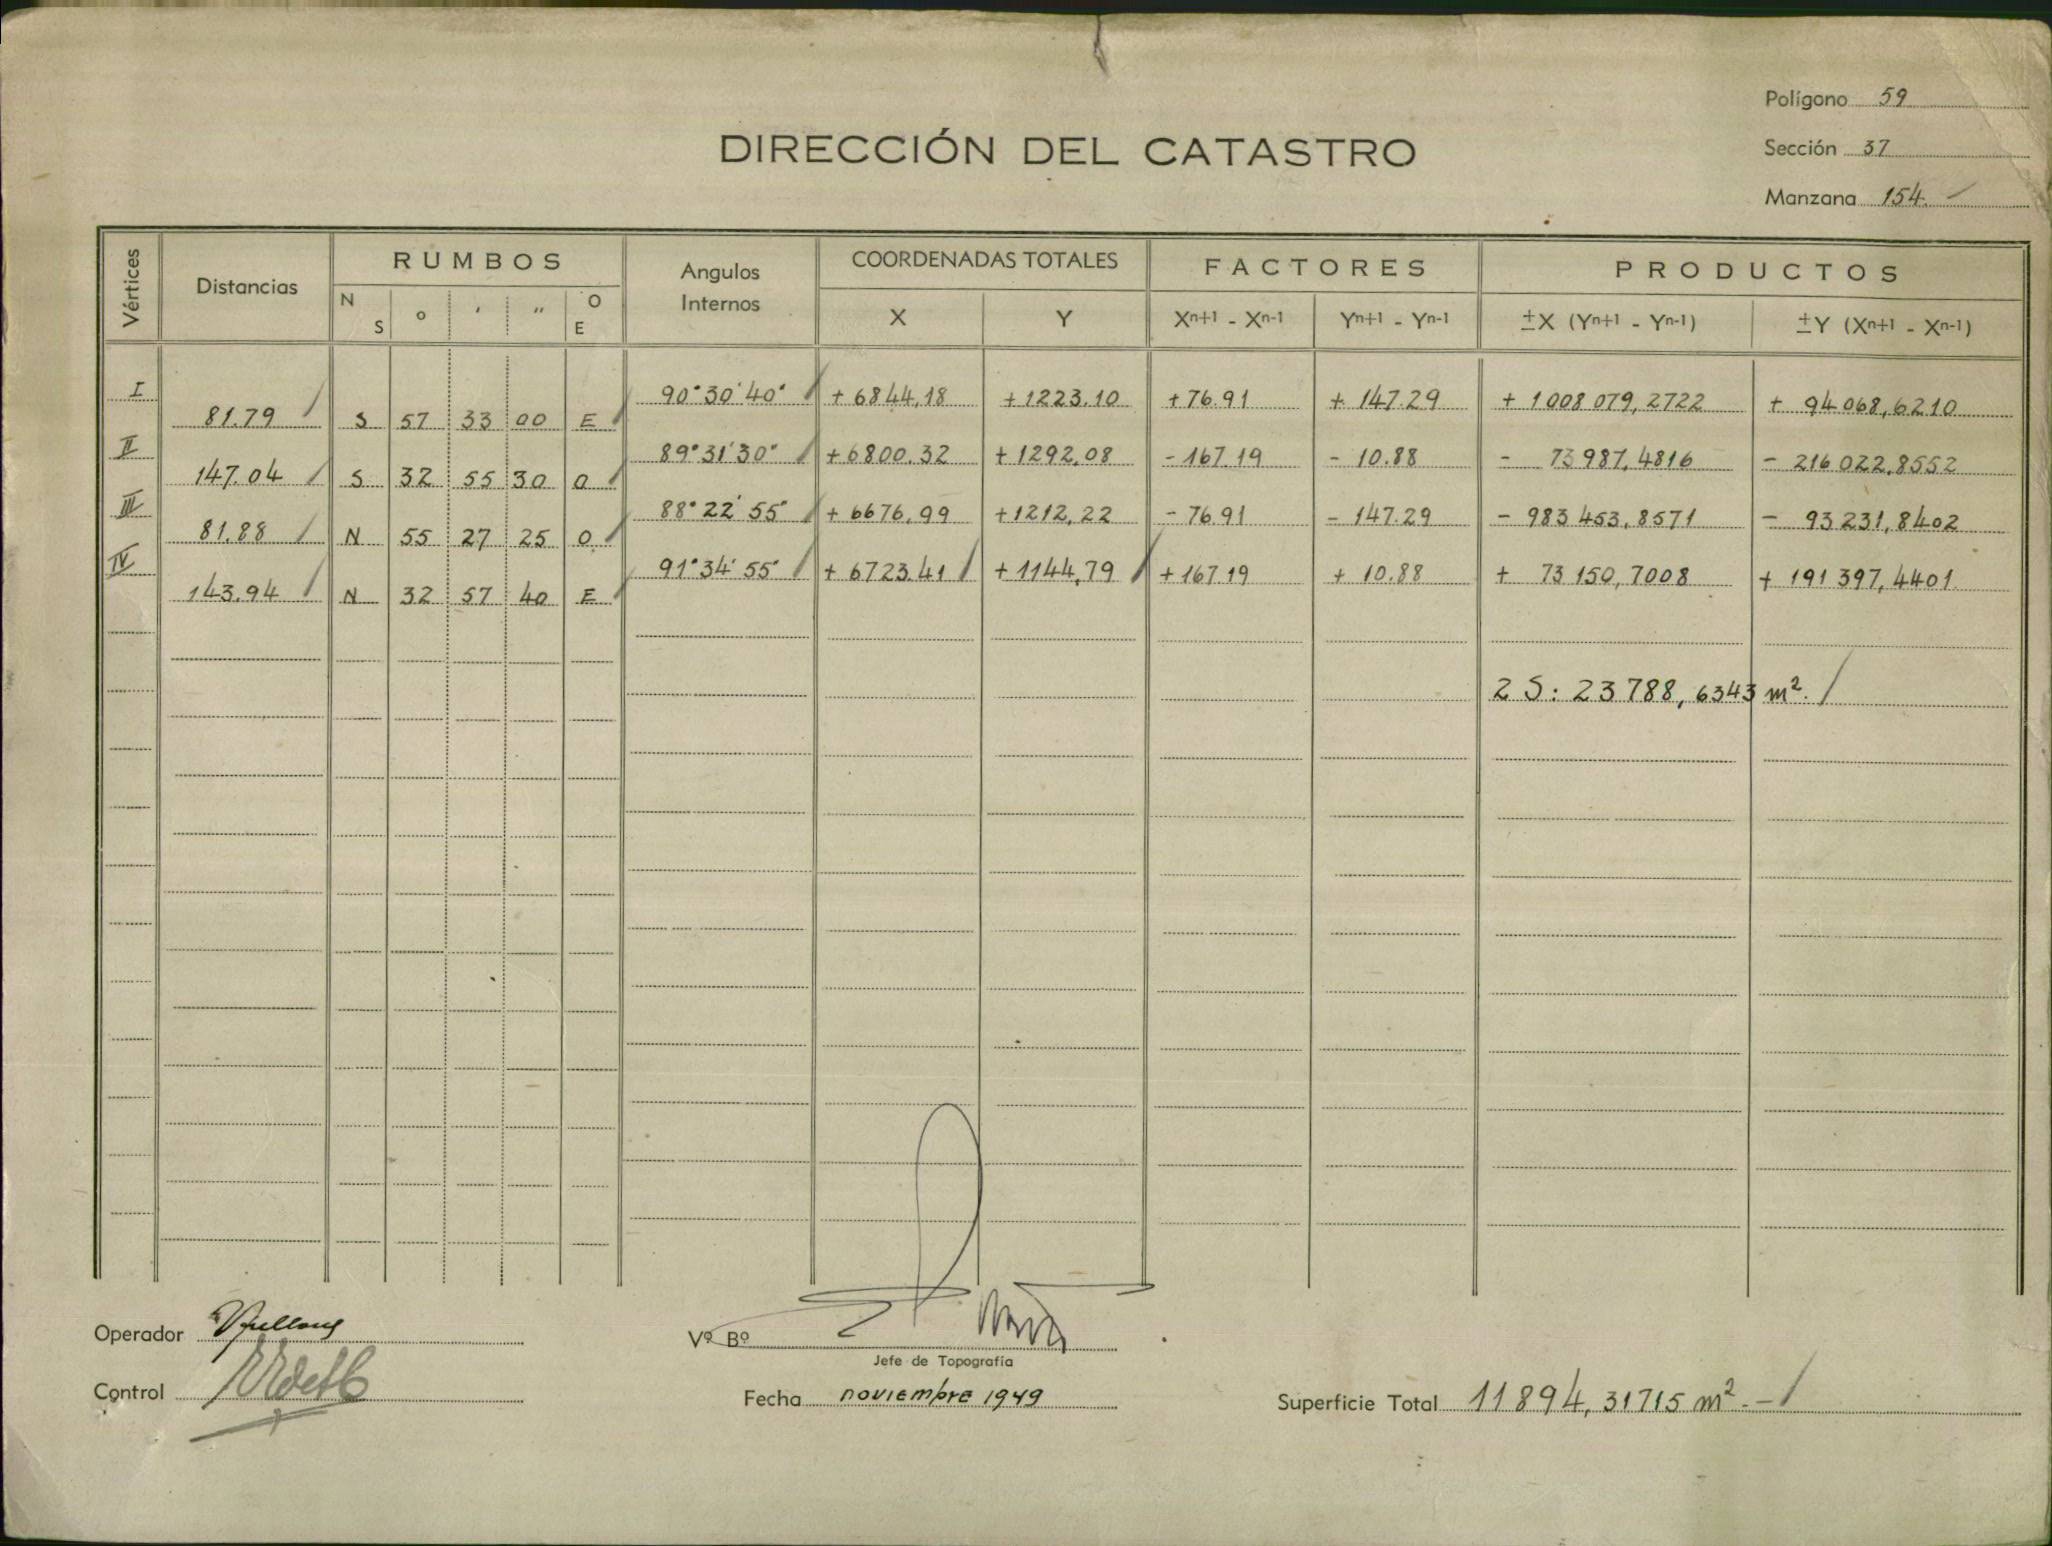 Polígono 59
DIRECCIÓN DEL CATASTRO
Sección 37
Manzana 154.
Vértices Distancias RUMBOS Angulos Internos COORDENADAS TOTALES FACTORES PRODUCTOS
N S ° ' " O E X Y Xn+1 - Xn-1 Yn+1 - Yn-1 ±X (Yn+1 - Yn-1) ±Y (Xn+1 - Xn-1)
I 90°30'40" +6844,18 +1223.10 +76.91 +147.29 +1008079,2722 +94068,6210
81.79 S 57 33 00 E
II 89°31'30" +6800.32 +1292,08 -167.19 -10.88 -73987,4816 -216022,8552
147.04 S 32 55 30 O
III 88°22'55" +6676,99 +1212,22 -76.91 -147.29 -983453,8571 -93231,8402
81.88 N 55 27 25 O
IV 91°34'55" +6723.41 +1144,79 +167.19 +10.88 +73150,7008 +191397,4401
143.94 N 32 57 40 E
2 S: 23788,6343 m².
Operador
Vº Bº
Jefe de Topografía
Control
Fecha noviembre 1949
Superficie Total 11894,31715 m².-